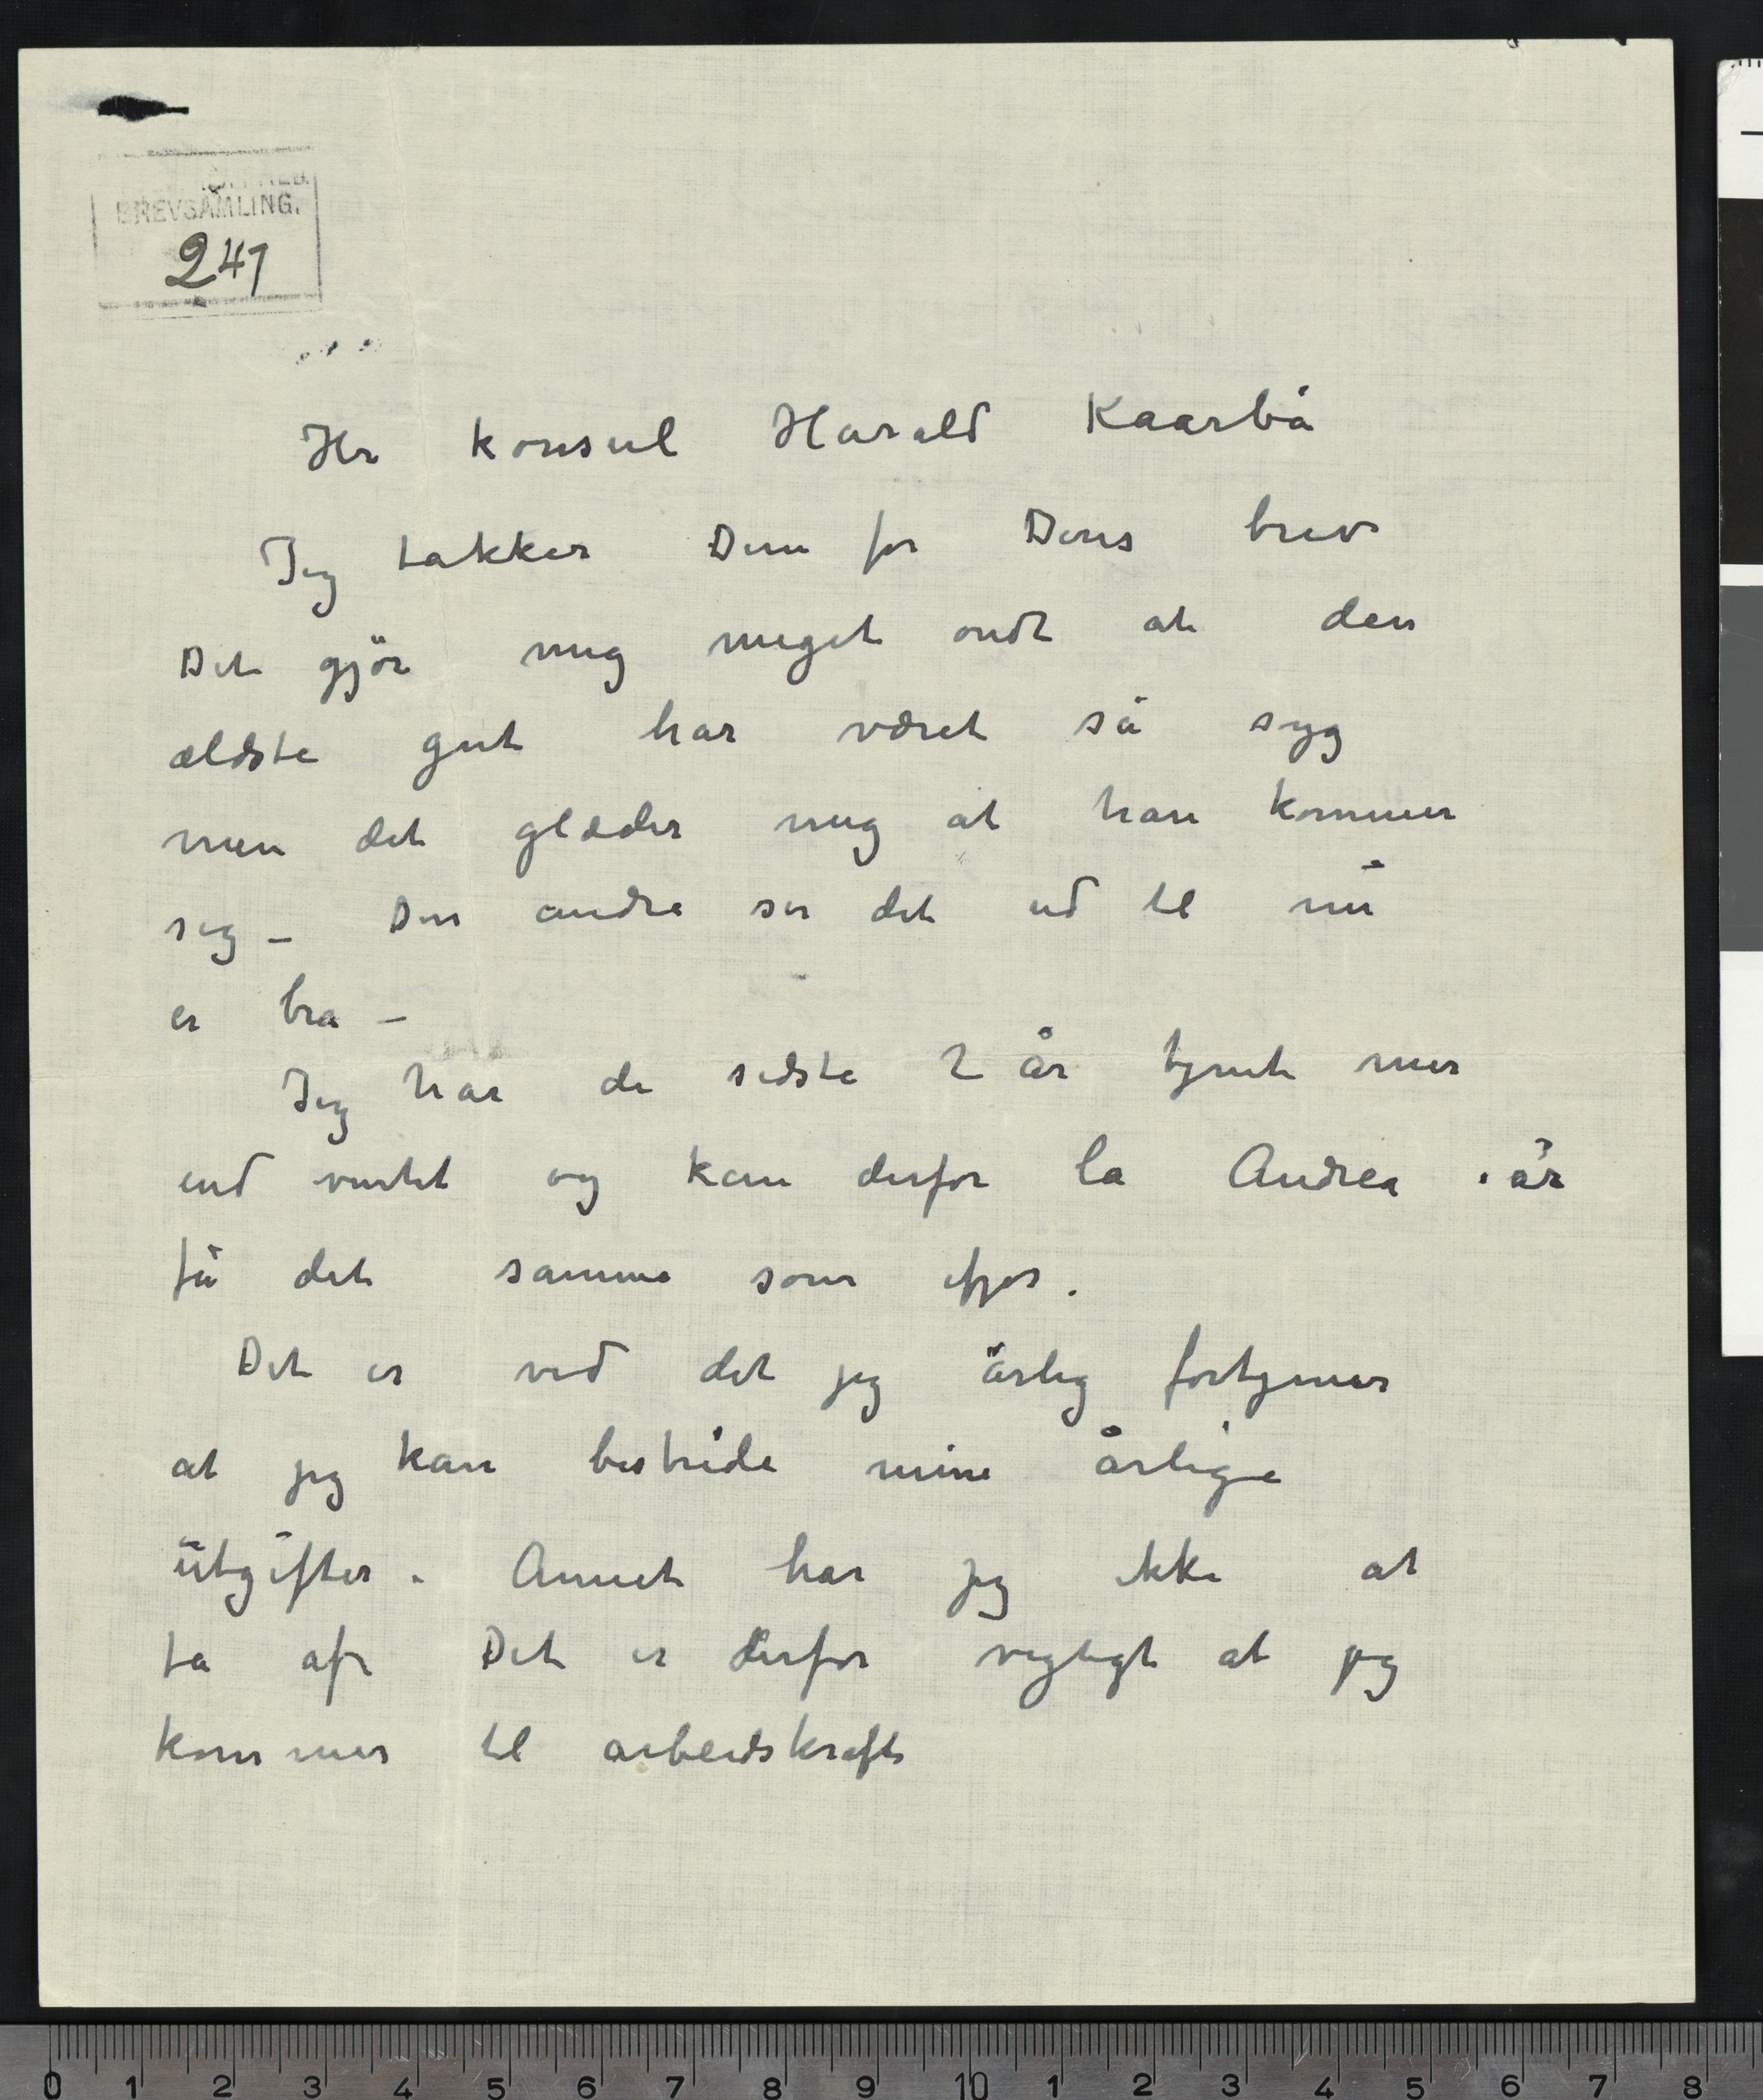 BREVSAMLING.
241
Hr konsul Harald Kaarbø
Jeg takker Dem for Deres brev
Det gjör mig meget ondt at den
ældste gut har været så syg
men det glæder mig at han kommer
sig – Den andre ser det ud til nu
er bra –
Jeg har de sidste 2 år tjent mer
end ventet og kan derfor la Andrea i år
få det samme som ifjor.
Det er ved det jeg årlig fortjener
at jeg kan bestride mine årlige
utgifter. Annet har jeg ikke at
ta af. Det er derfor vigtigt at jeg
kommer til arbeidskraft
0 1 2 3 4 5 6 7 8 9 10 1 2 3 4 5 6 7 8